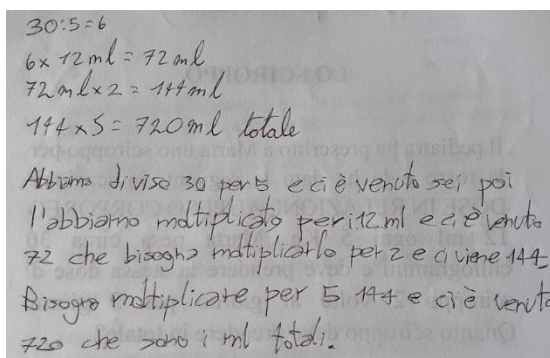 30:5=6
6x12ml=72ml
72mlx2=144ml
144x5=720ml totale
Abbiamo diviso 30 per 5 e ci è venuto sei poi
l'abbiamo moltiplicato per i 12 ml e ci è venuto
72 che bisogna moltiplicarlo per 2 e ci viene 144
Bisogna moltiplicare per 5 144 e ci è venuto
720 che sono i ml totali.